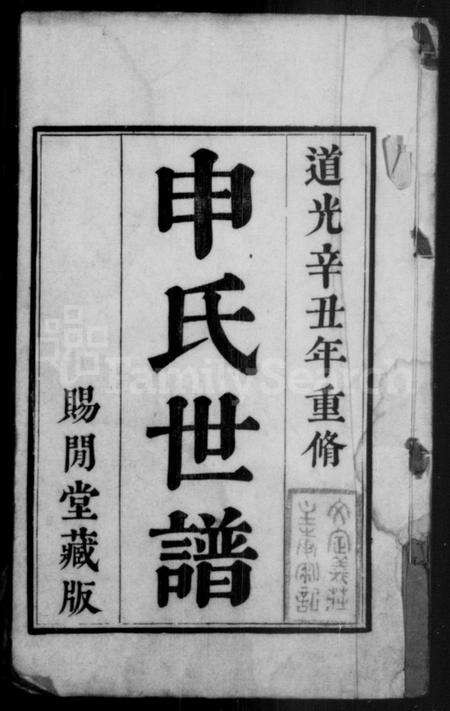 道光辛丑年重脩
申氏世譜
賜閒堂藏版
FamilySearch